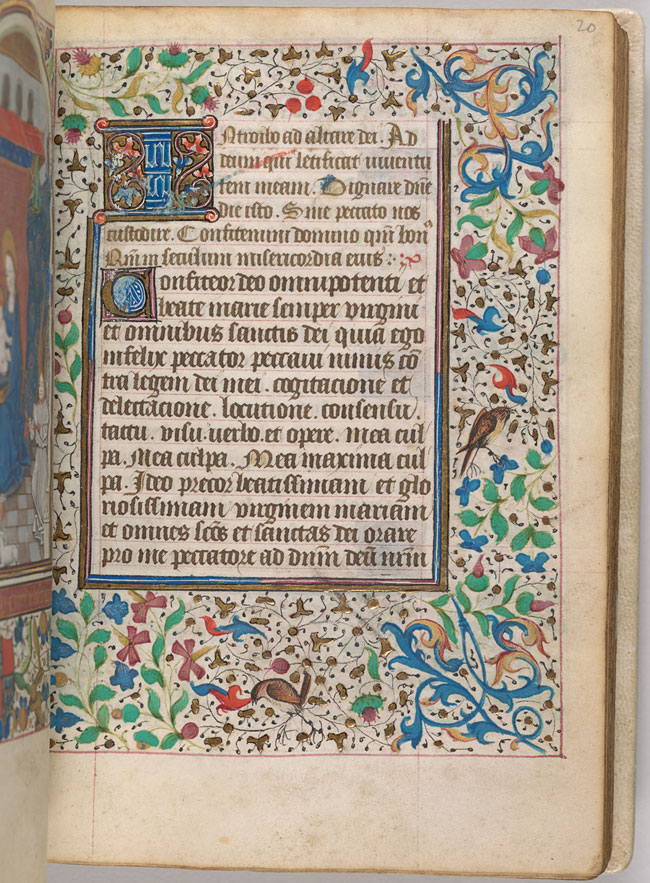 20
INtroibo ad altare dei. Ad
deum qui letificat iuventu
tem meam. Dignare dñe
die isto. Sine peccato nos
custodire. Confitemini domino qm̄ bonꝰ
Qm̄ in seculum misericordia eius :
Confiteor deo omnipotenti et
beate marie semper virgini
et omnibus sanctis dei quia ego
infelix peccator peccaui nimis cō
tra legem dei mei . cogitacione et
delectacione . locutione . consensu .
tactu . visu . verbo . et opere . mea cul
pa . Mea culpa . Mea maxima cul
pa . Ideo precor beatissimam et glo
riosissimam virginem mariam
et omnes sc̄os et sanctas dei orare
pro me peccatore ad dnm̄ deū nr̄m